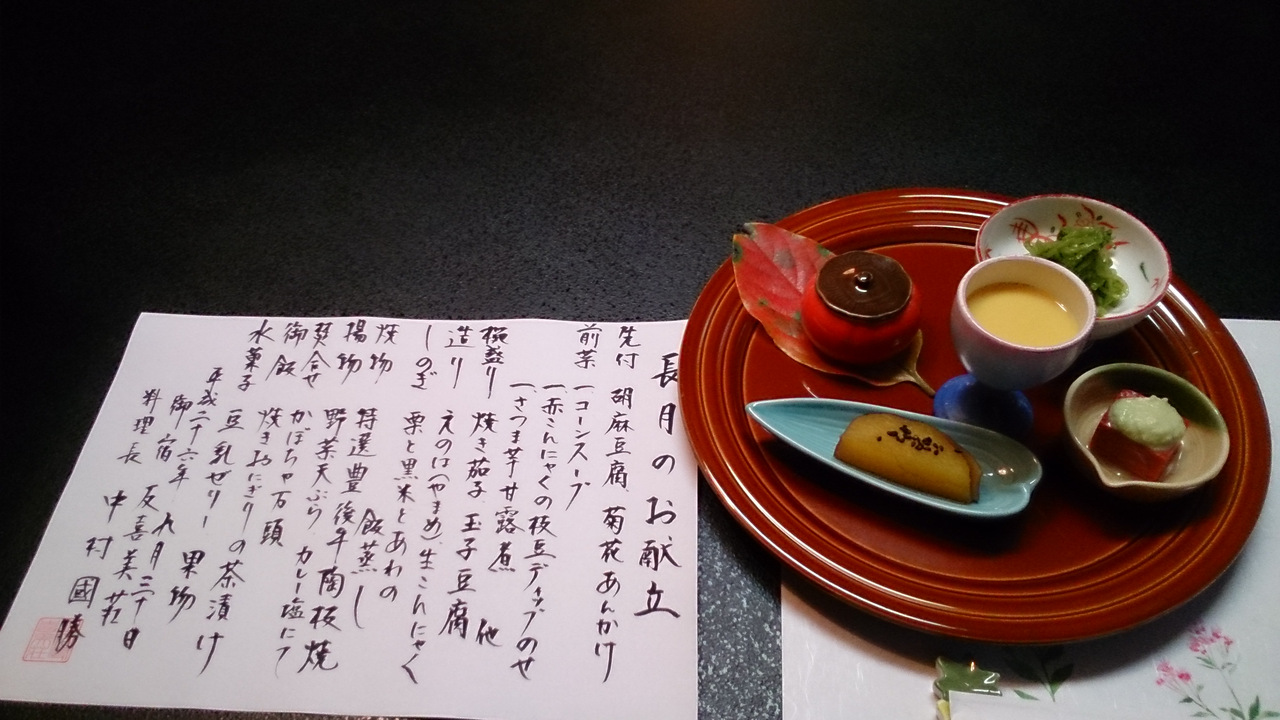 長月のお献立
先付 胡麻豆腐、菊花あんかけ
前菜 一コーンスープ
一赤こんにゃくの枝豆ディップのせ
一さつま芋甘露煮
椀盛り 焼き茄子 玉子豆腐 他
造り えのは(やまめ)生こんにゃく
しのぎ 栗と黒米とあわの飯蒸し
焼物 特選豊後牛陶板焼
揚物 野菜天ぷら カレー塩にて
焚合せ かぼちゃ万頭
御飯 焼きおにぎりの茶漬け
水菓子 豆乳ゼリー 果物
平成二十六年 九月三十日
御宿 友喜美荘
料理長 中村國勝